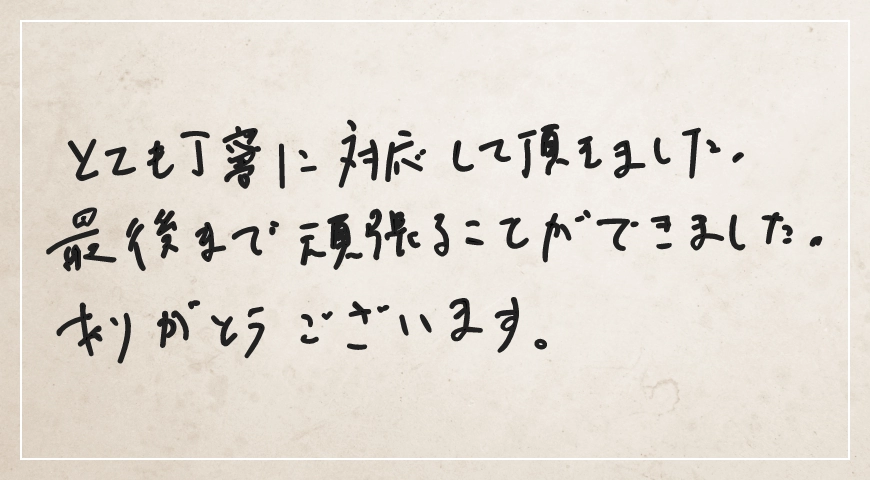 とても丁寧に対応して頂きました。
最後まで頑張ることができました。
ありがとうございます。